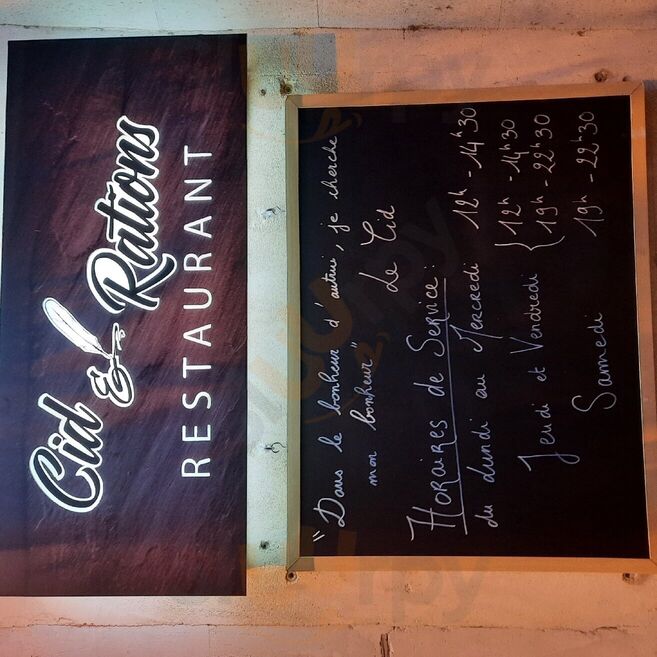 Cid & Rations
RESTAURANT
"Dans le bonheur d'autrui, je cherche
mon bonheur"
Le Cid
HORAIRES de SERVICE:
du Lundi au Mercredi 12h - 14h30
Jeudi et Vendredi { 12h - 14h30
19h - 22h30
Samedi 19h - 22h30